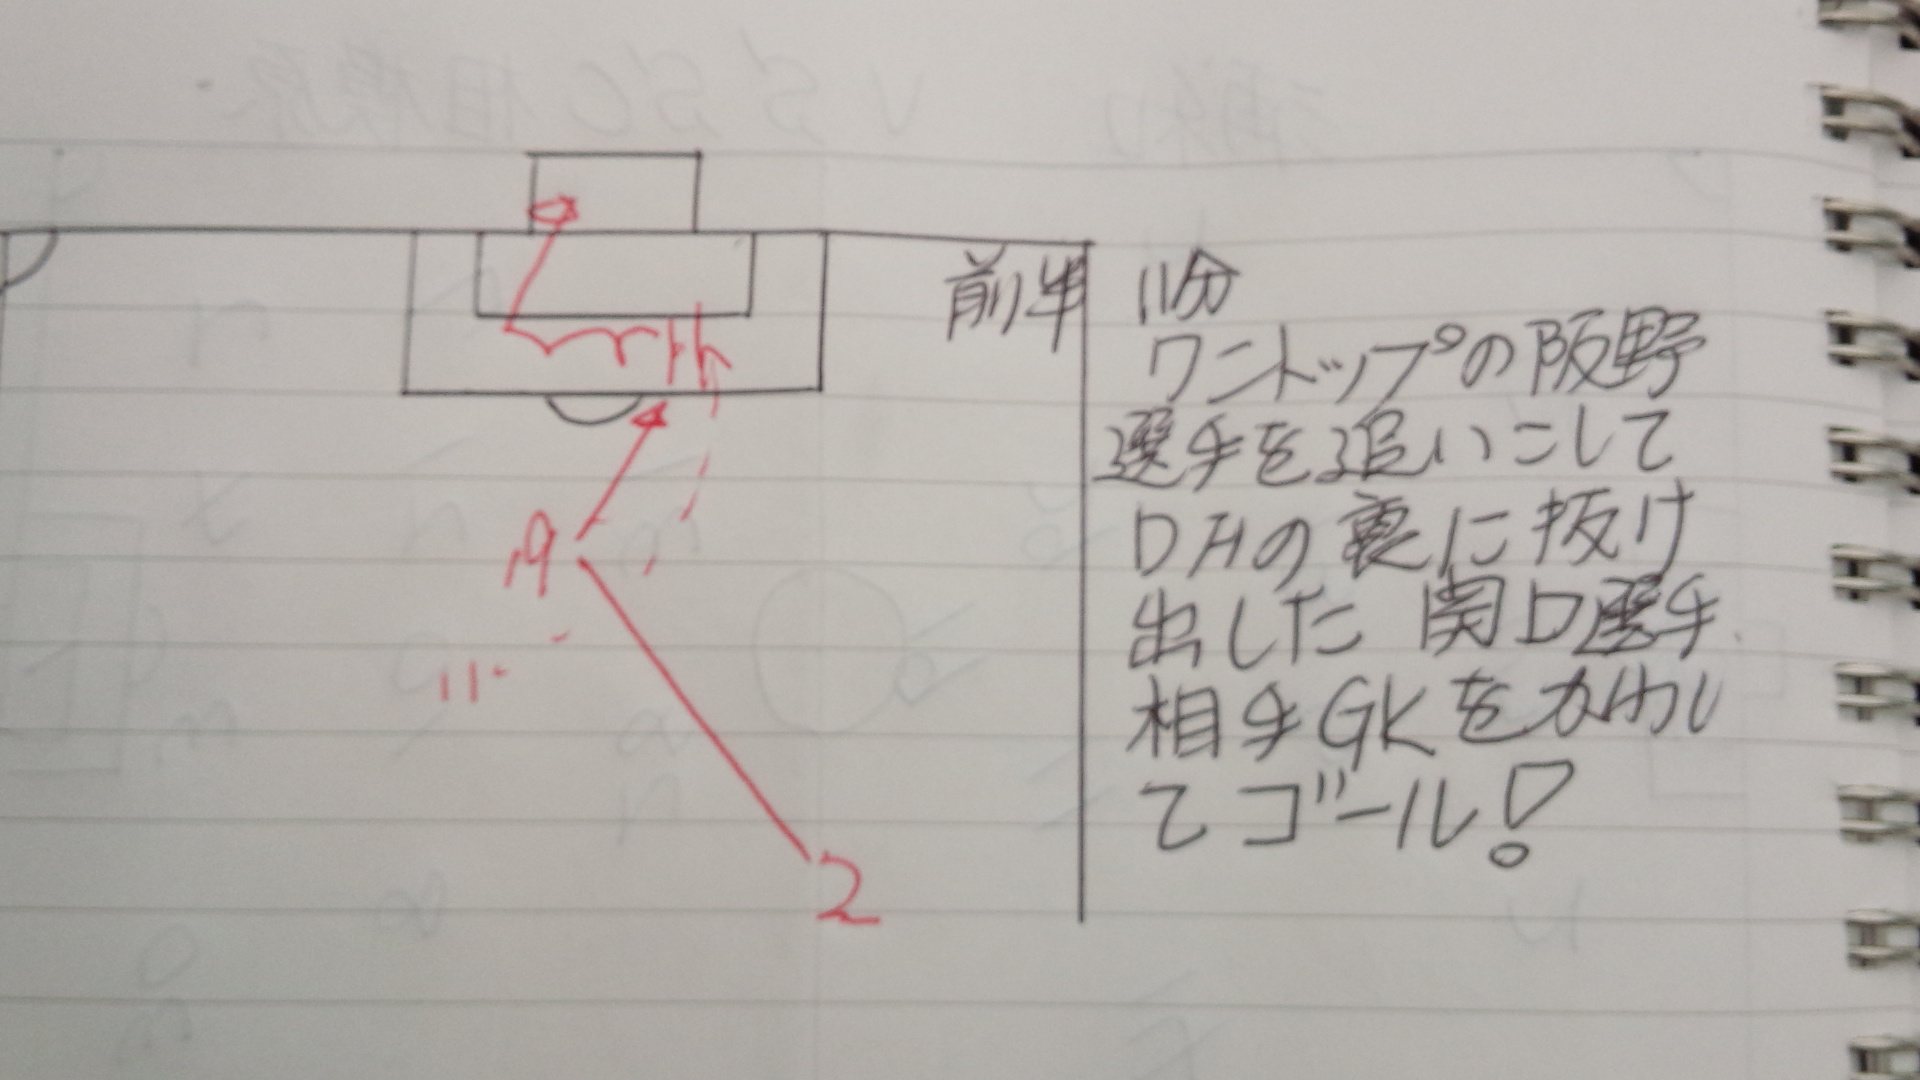 前半 11分
ワントップの阪野
選手を追いこして
DHの裏に抜け
出した関口選手
相手GKをかわし
てゴール!
19
11
11
2